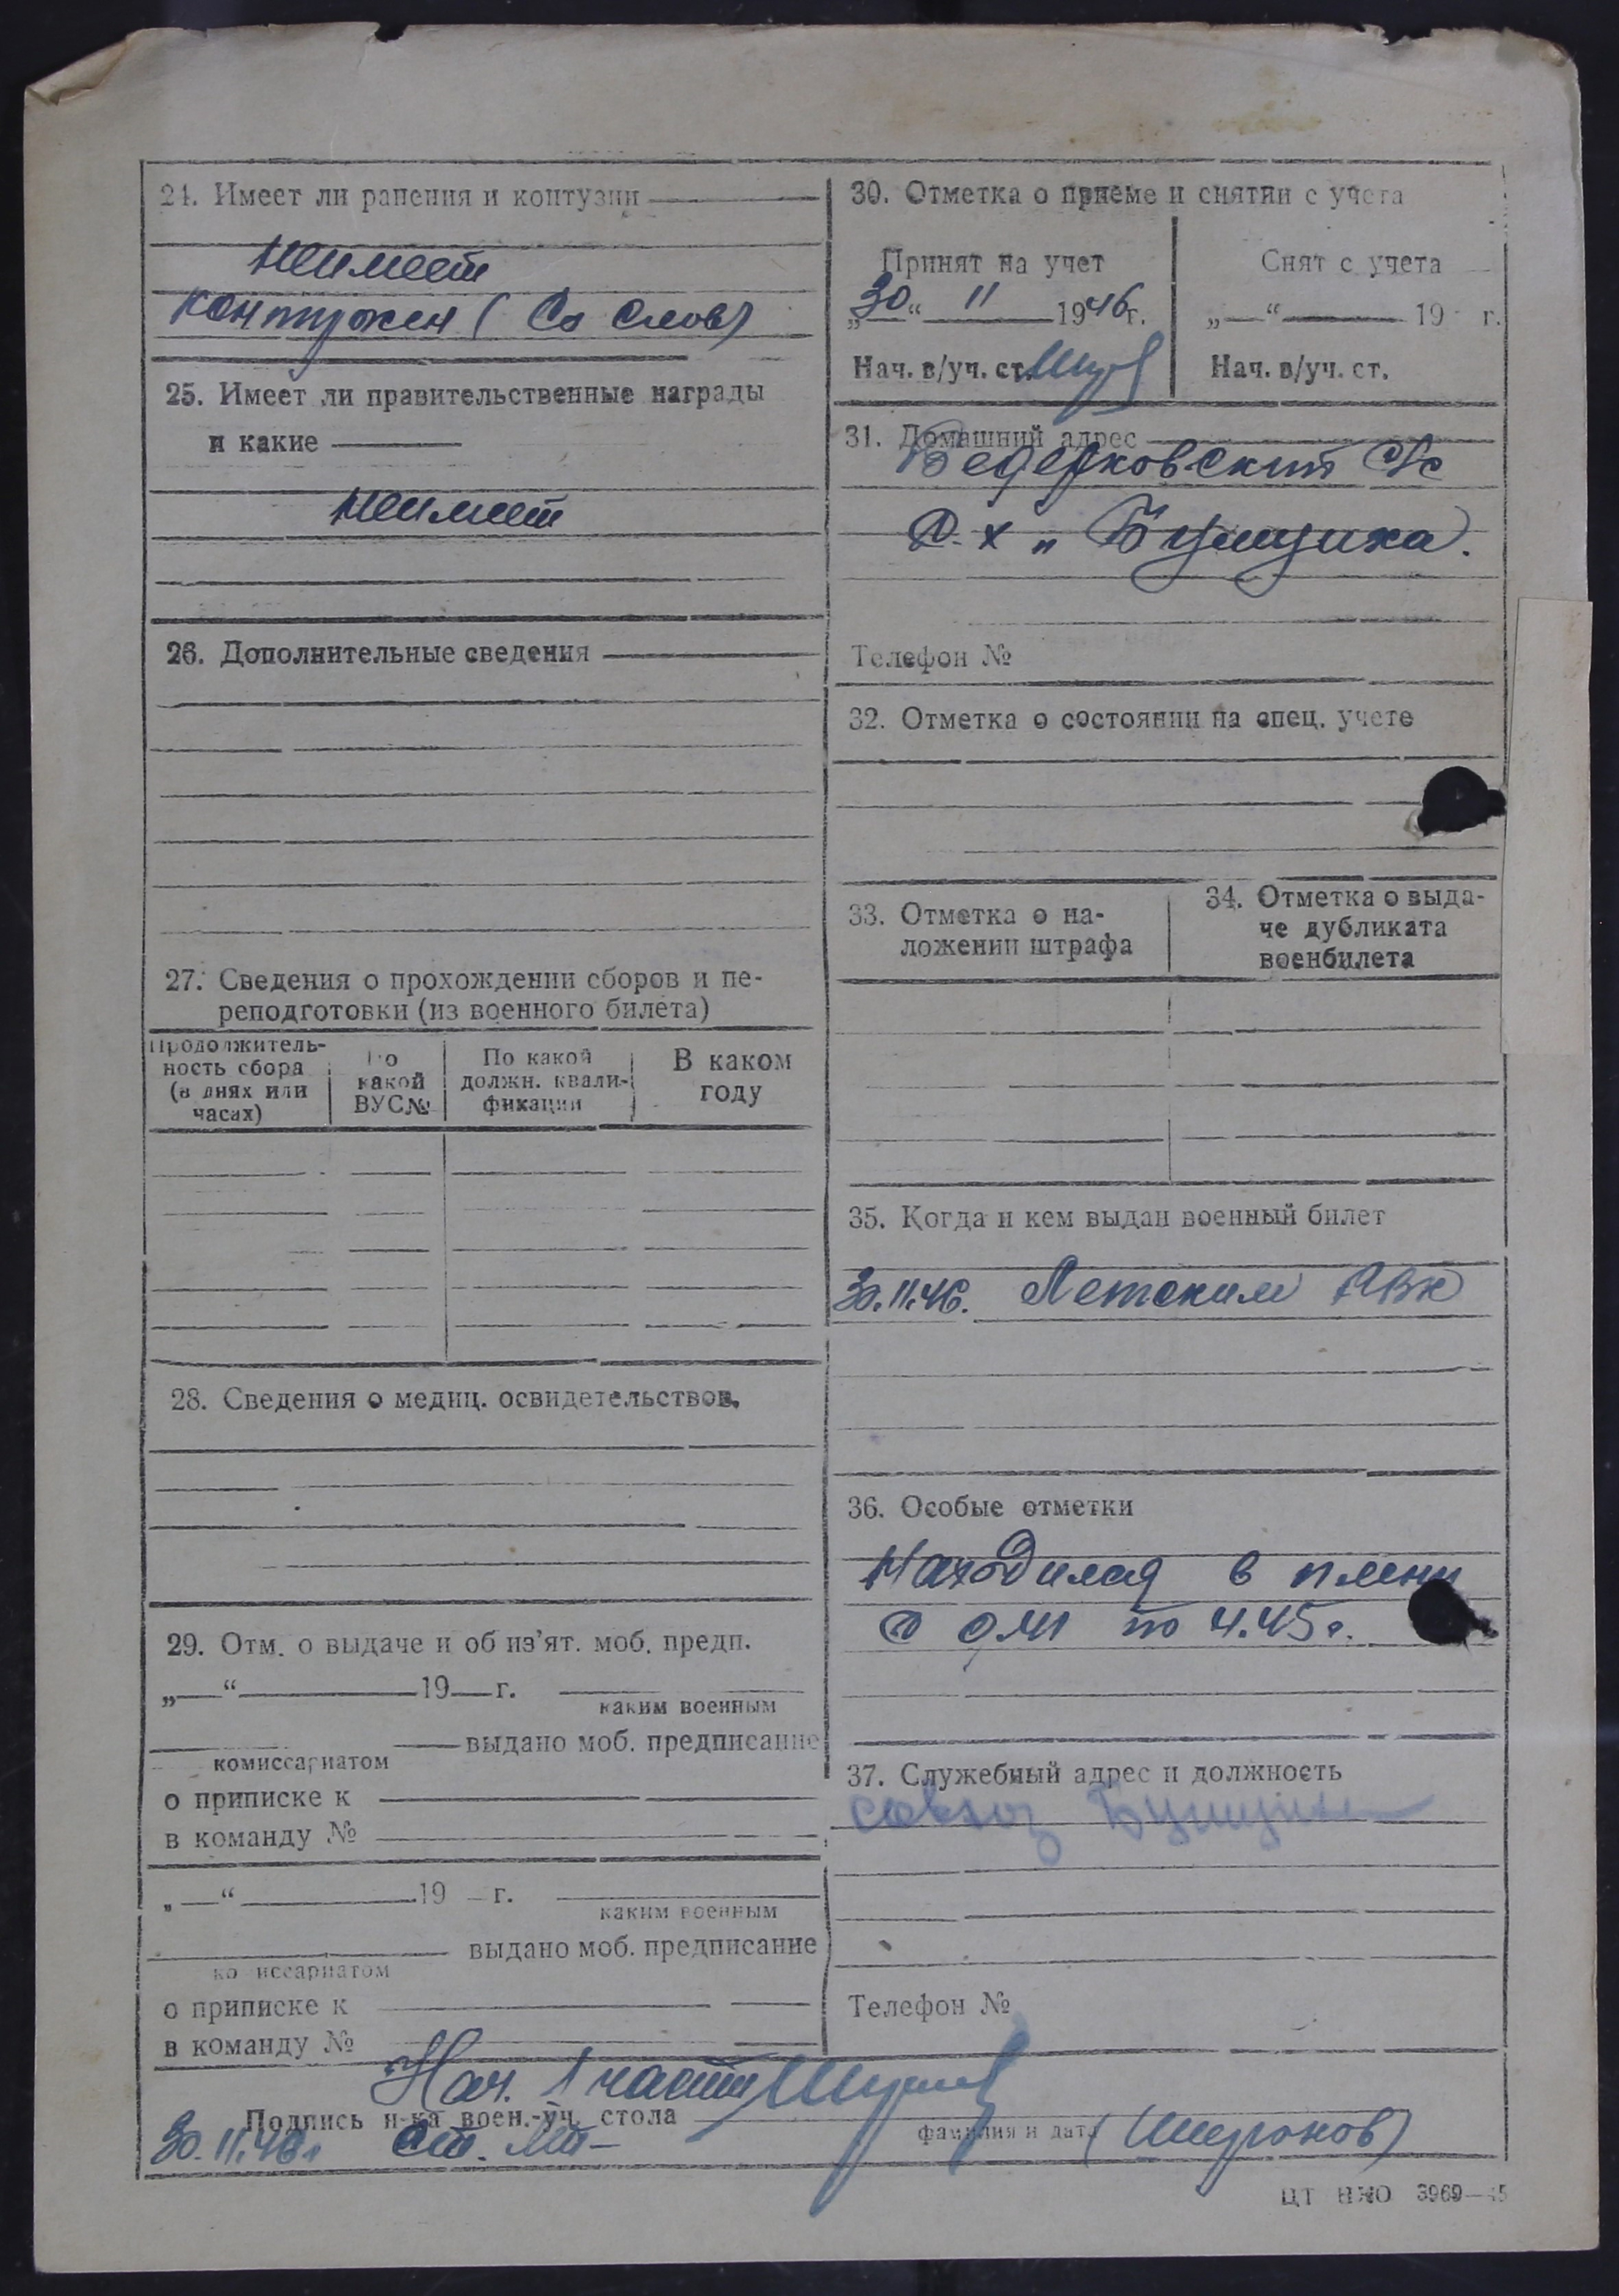 24. Имеет ли ранения и контузии
Неимеет
контужен (Со слов)
25. Имеет ли правительственные награды
и какие
Неимеет
26. Дополнительные сведения
27. Сведения о прохождении сборов и пе-
реподготовки (из военного билета)
Продолжитель-
ность сбора
(в днях или
часах)
По
какой
ВУС№
По какой
должн. квали-
фикации
В каком
году
28. Сведения о медиц. освидетельствов.
29. Отм. о выдаче и об из'ят. моб. предп.
„—“ 19 г.
каким военным
выдано моб. предписание
комиссариатом
о приписке к
в команду №
„—“ 19 г.
каким военным
выдано моб. предписание
комиссариатом
о приписке к
в команду №
30. Отметка о приеме и снятии с учета
Принят на учет
„30“ 11 1946г.
Нач. в/уч. ст.
Снят с учета
„—“ 19 г.
Нач. в/уч. ст.
31. Домашний адрес
с/с
"Бушуиха.
Телефон №
32. Отметка о состоянии на спец. учете
33. Отметка о на-
ложении штрафа
34. Отметка о выда-
че дубликата
военбилета
35. Когда и кем выдан военный билет
30.11.46. Летским РВК
36. Особые отметки
Находился в плену
с 9.41 по 4.45г.
37. Служебный адрес и должность
совхоз
Телефон №
Нач. 1 части
Подпись н-ка воен.-уч. стола
фамилия и дата
30.11.46г ст. Лт- (Широнов)
ЦТ НКО 3969—45